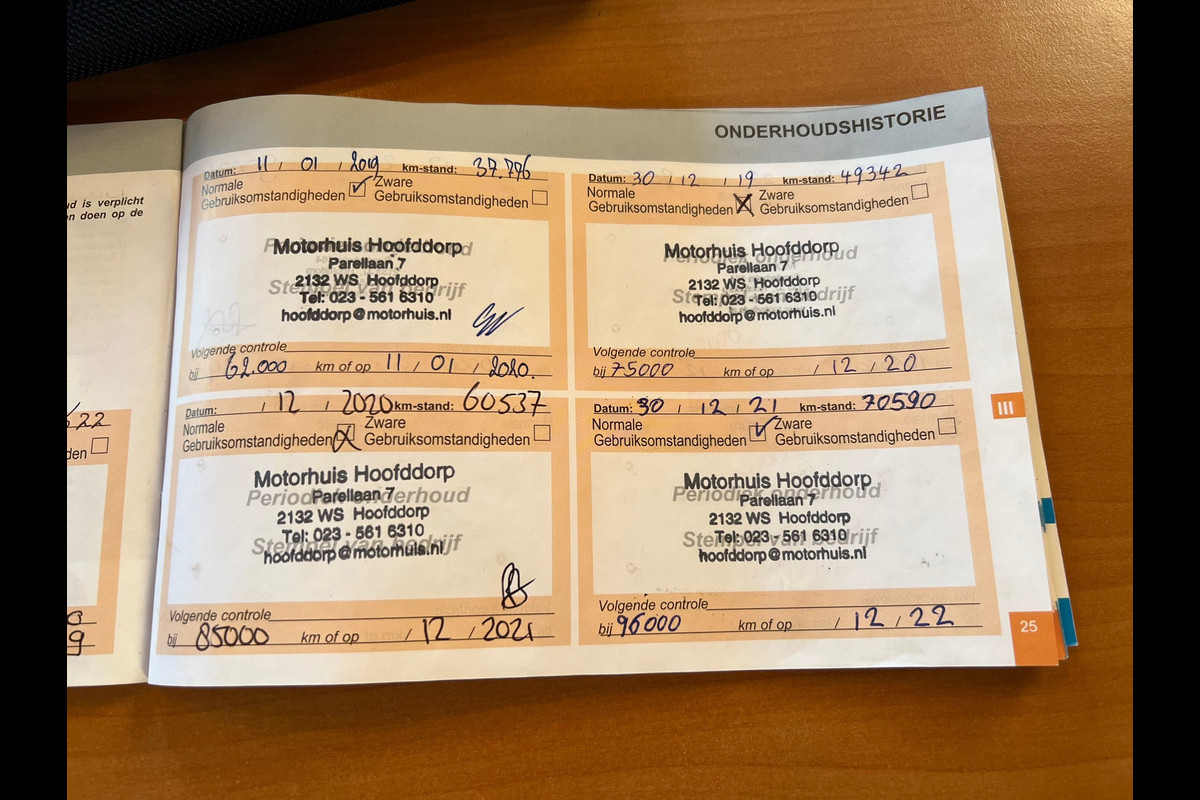 ud is verplicht
en doen op de
22
den
9
ONDERHOUDSHISTORIE
Datum: 11 / 01 / 2019 km-stand: 37.776
Normale
Gebruiksomstandigheden
Zware
Gebruiksomstandigheden
Periodiek onderhoud
Stempel van bedrijf
Motorhuis Hoofddorp
Parellaan 7
2132 WS Hoofddorp
Tel: 023 - 561 6310
hoofddorp@motorhuis.nl
Volgende controle
bij 62.000 km of op 11 / 01 / 2020.
Datum: 30 / 12 / 19 km-stand: 49342
Normale
Gebruiksomstandigheden
Zware
Gebruiksomstandigheden
Periodiek onderhoud
Stempel van bedrijf
Motorhuis Hoofddorp
Parellaan 7
2132 WS Hoofddorp
Tel: 023 - 561 6310
hoofddorp@motorhuis.nl
Volgende controle
bij 75000 km of op / 12 / 20
Datum: / 12 / 2020 km-stand: 60537
Normale
Gebruiksomstandigheden
Zware
Gebruiksomstandigheden
Periodiek onderhoud
Stempel van bedrijf
Motorhuis Hoofddorp
Parellaan 7
2132 WS Hoofddorp
Tel: 023 - 561 6310
hoofddorp@motorhuis.nl
Volgende controle
bij 85000 km of op / 12 / 2021
Datum: 30 / 12 / 21 km-stand: 70590
Normale
Gebruiksomstandigheden
Zware
Gebruiksomstandigheden
Periodiek onderhoud
Stempel van bedrijf
Motorhuis Hoofddorp
Parellaan 7
2132 WS Hoofddorp
Tel: 023 - 561 6310
hoofddorp@motorhuis.nl
Volgende controle
bij 96000 km of op / 12 / 22
III
25